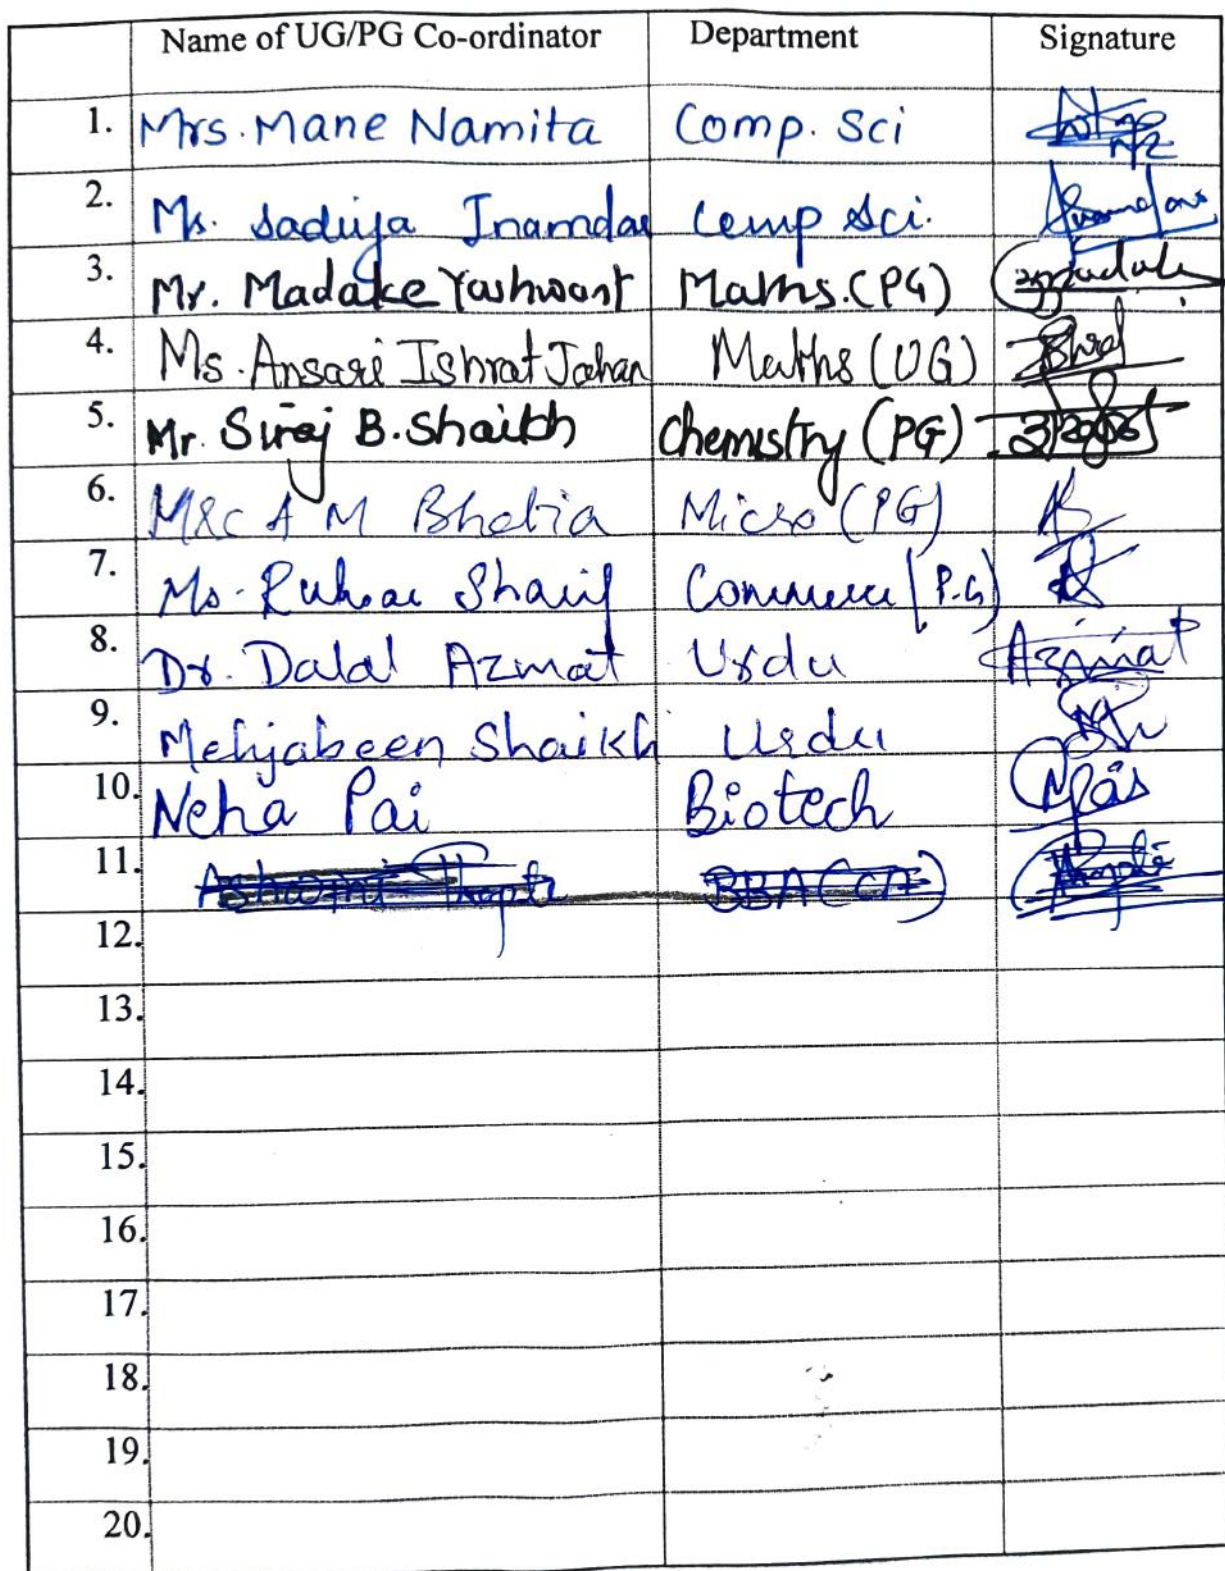 Name of UG/PG Co-ordinator Department Signature
1. Mrs. Mane Namita Comp. Sci
2. Ms. Sadiya Inamdar Comp Sci.
3. Mr. Madake Yashwant Maths.(PG)
4. Ms. Ansari Ishrat Jahan Maths (UG)
5. Mr. Siraj B. Shaikh Chemistry (PG)
6. A M Micro (PG)
7. Ms. Commerce (P.G)
8. Dr. Dalal Azmat Urdu Azmat
9. Mehjabeen Shaikh Urdu
10. Neha Pai Biotech
11. BBA (CA)
12.
13.
14.
15.
16.
17.
18.
19.
20.